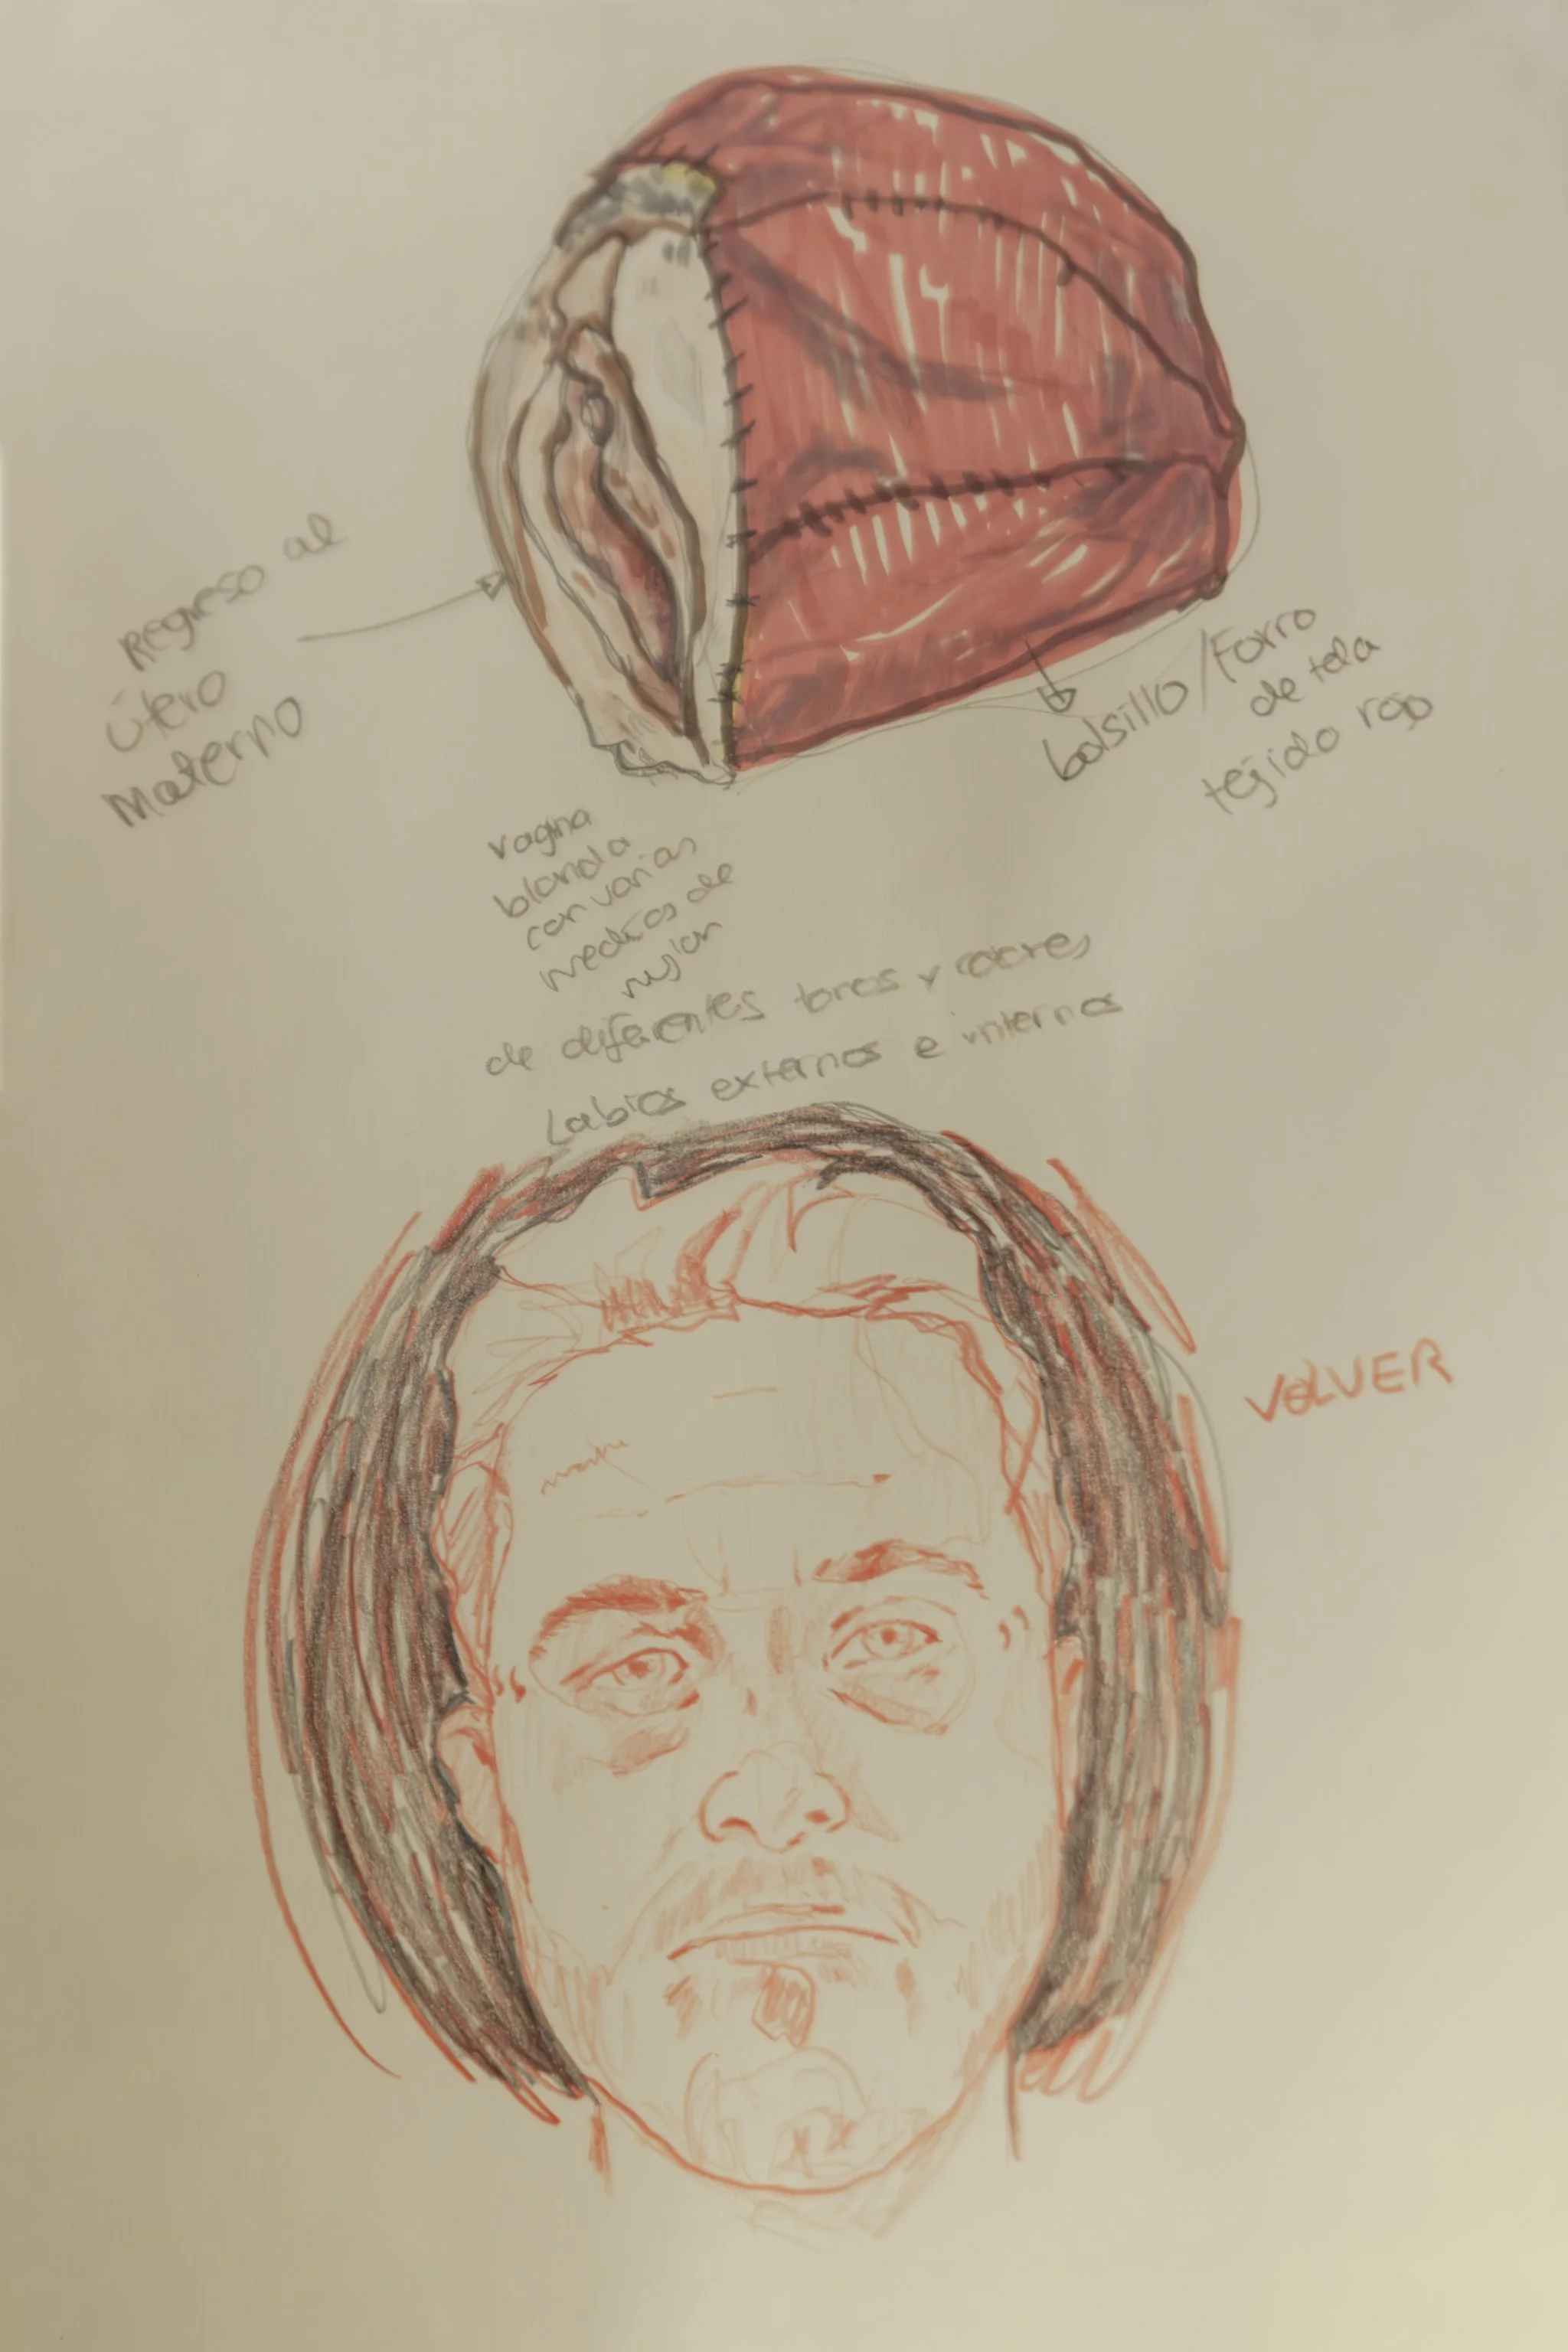 Regreso al
útero
Materno
bolsillo/Forro
de tela
tejido rojo
vagina
blanda
con varias
medias de
de diferentes tonos y colores
Labios externos e internos
VOLVER